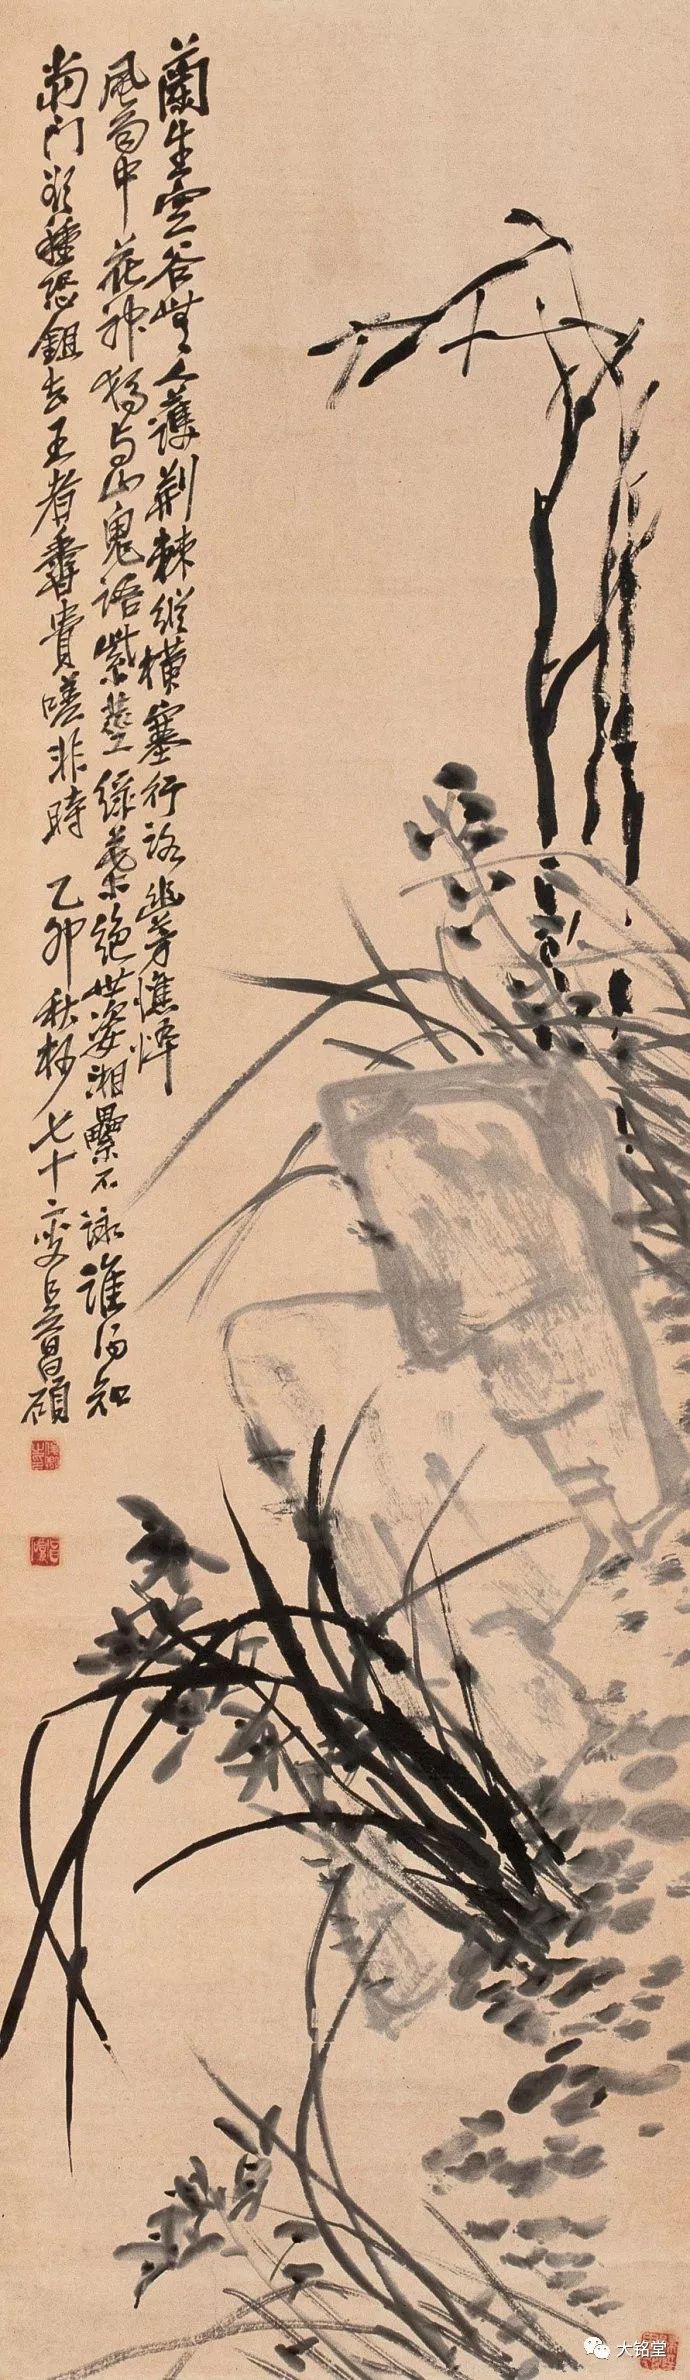 蘭生空谷無人護荆棘縱橫塞行路幽芳憔悴
風雨中花神獨与山鬼語紫莖綠葉絕世姿湘纍不詠誰得知
當門欲種恐鉏去王者香貴嗟非時 乙卯秋杪七十二叟吳昌碩
大铭堂